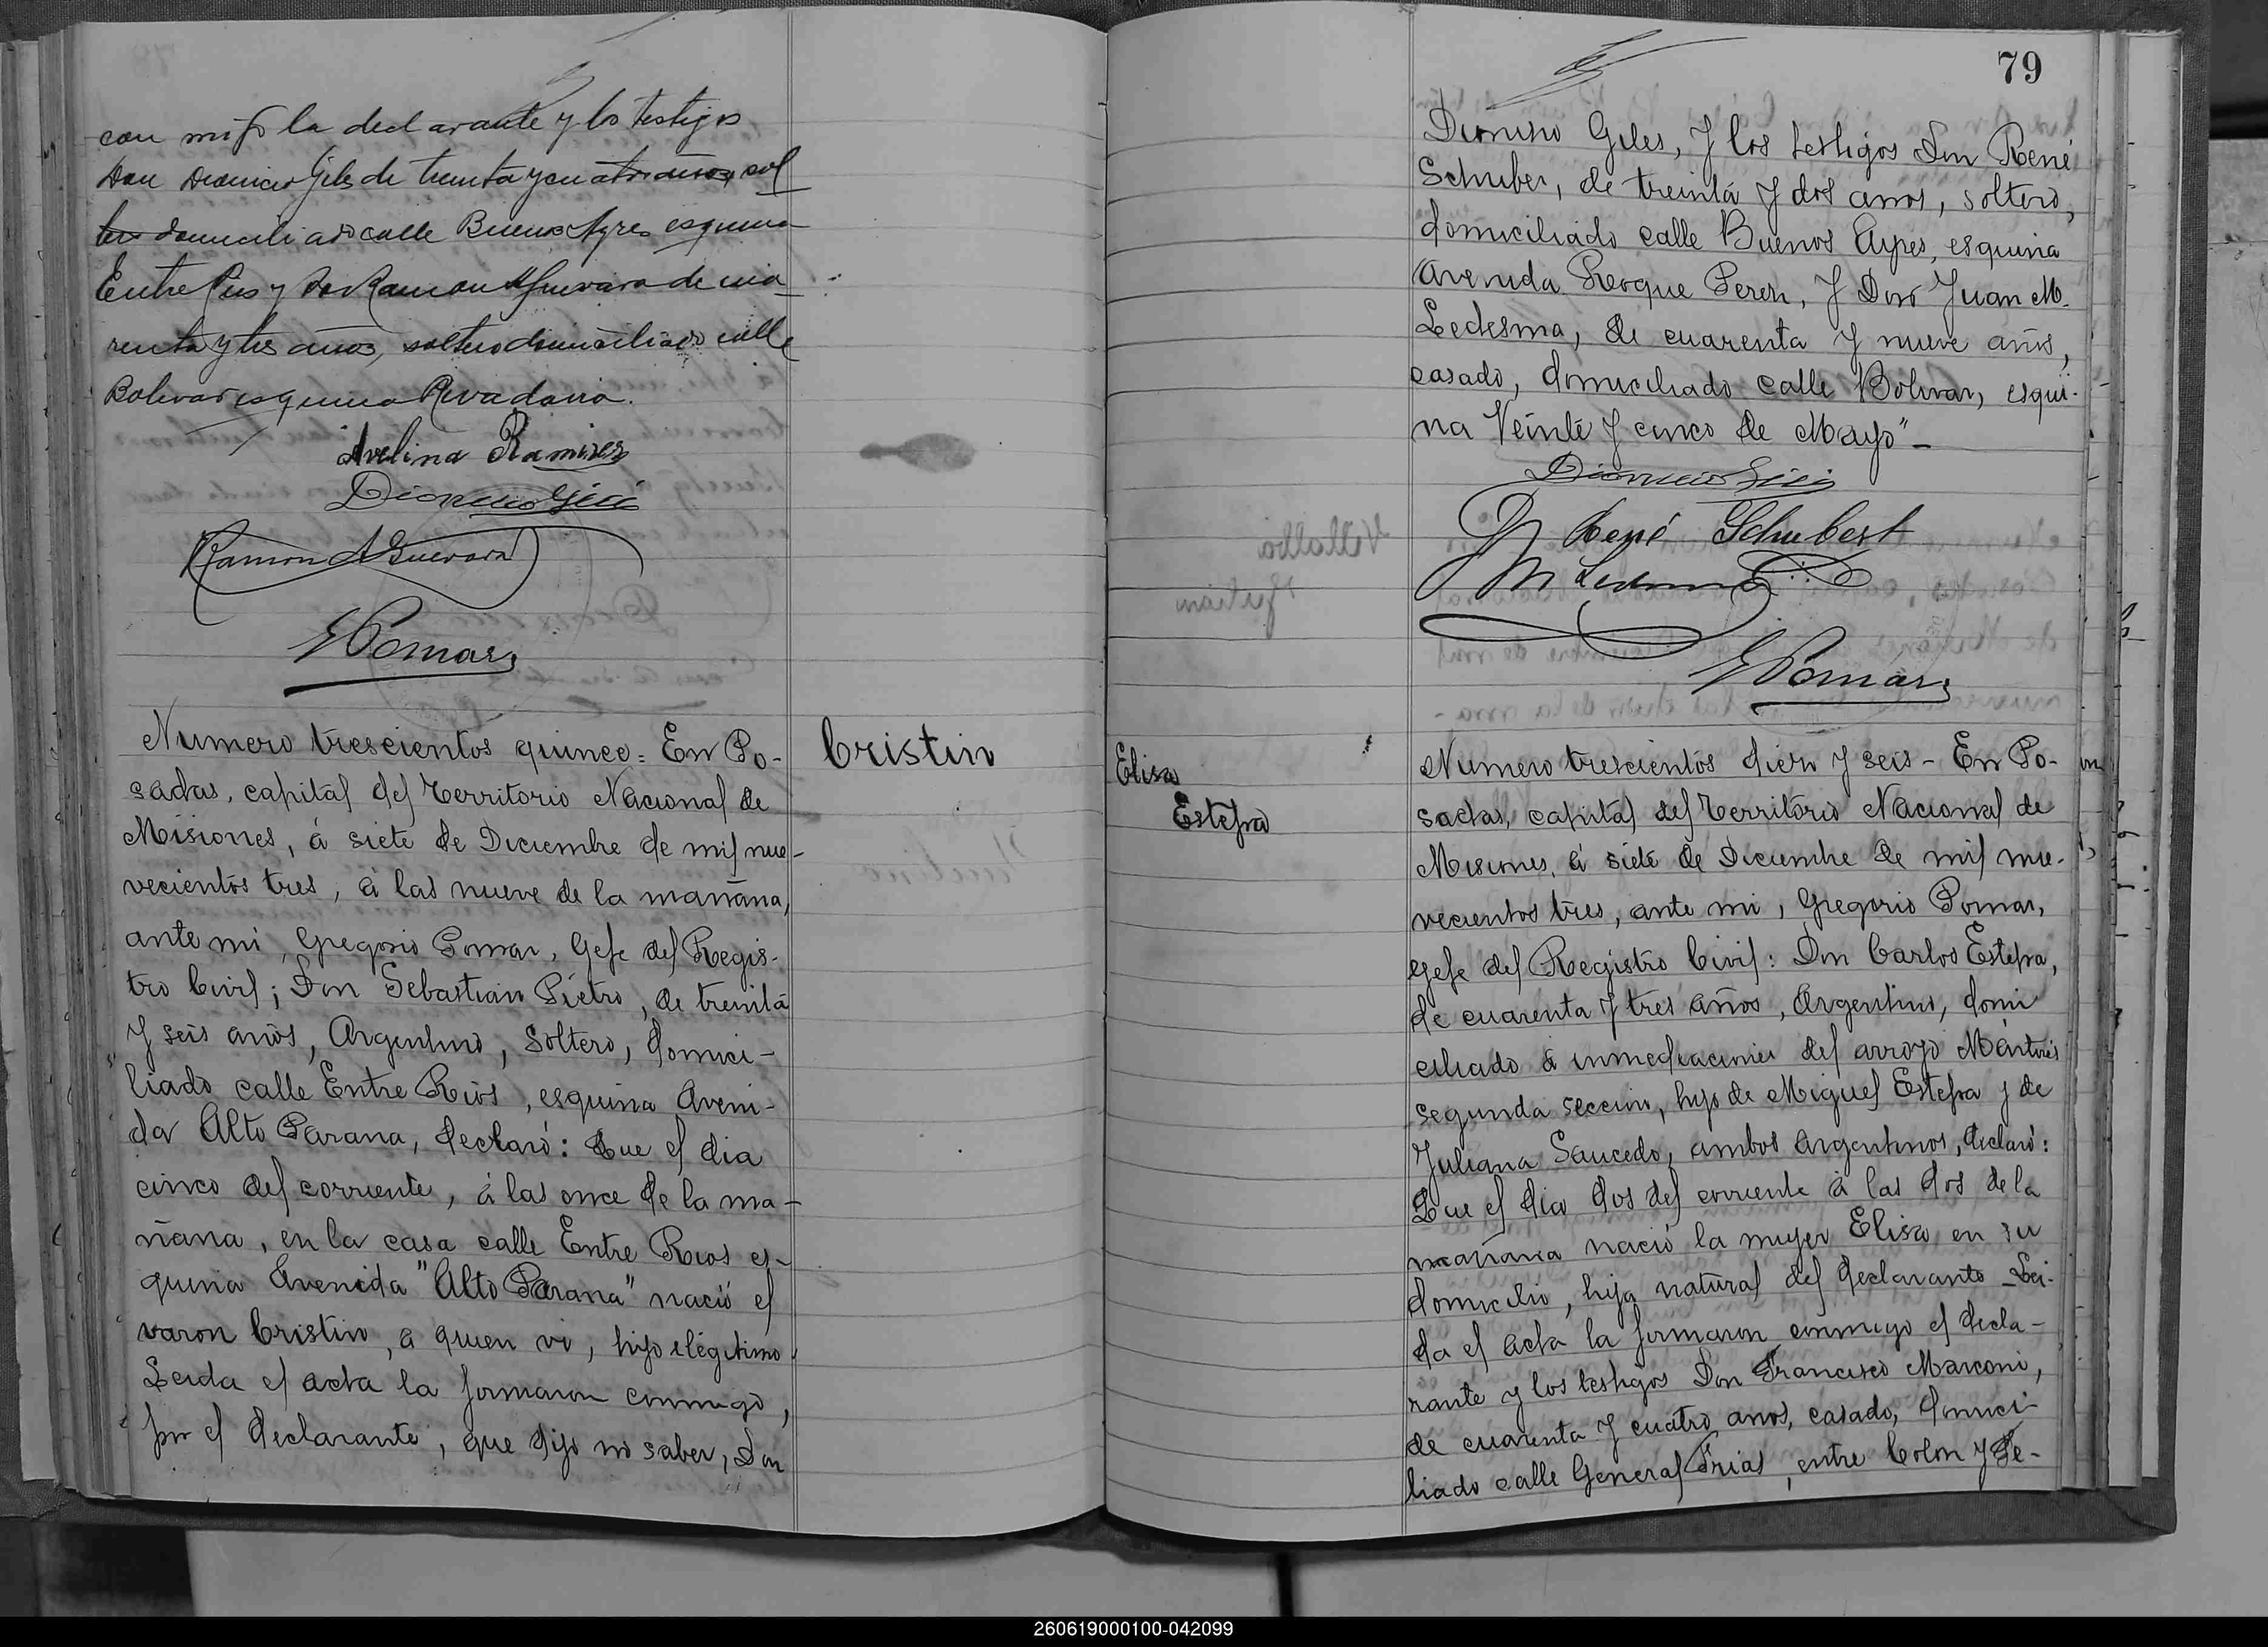 con migo la declarante y los testigos
Don Dionicio Giles de treinta y cuatro años, sol
tero domiciliado calle Buenos Ayres esquina
Entre Rios y Don Ramon A Guevara de cua
renta y tres años, soltero domiciliado calle
Bolivar esquina Rivadavia.
Avelina Ramirez
Dionicio Giles
Ramon A Guevara
G Pomar
Numero trescientos quince = En Po-
sadas, capital del Territorio Nacional de
Misiones, á siete de Diciembre de mil nue-
vecientos tres, á las nueve de la mañana,
ante mi, Gregorio Pomar, Gefe del Regis-
tro Civil; Don Sebastian Pietro, de treinta
y seis años, Argentino, Soltero, domici-
liado calle Entre Rios, esquina Aveni-
da Alto Parana, declaró: Que el dia
cinco del corriente, á las once de la ma-
ñana, en la casa calle Entre Rios es-
quina Avenida "Alto Parana" nació el
varon Cristin, a quien vi, hijo elégitimo
Leida el acta la firmaron conmigo,
por el declarante, que dijo no saber, Don
Cristin
79
Dionisio Giles, y los testigos Don René
Schuber, de treinta y dos años, soltero,
domiciliado calle Buenos Ayres, esquina
Avenida Roque Perez, y Don Juan M.
Ledesma, de cuarenta y nueve años,
casado, domiciliado calle Bolivar, esqui-
na Veinte y cinco de Mayo"-
Dionicio Giles
René Schubert
M Ledesma
G Pomar
Elisa
Estepa
Numero trescientos diez y seis - En Po-
sadas, capital del Territorio Nacional de
Misiones, á siete de Diciembre de mil nue-
vecientos tres, ante mi, Gregorio Pomar,
Gefe del Registro Civil: Don Carlos Estepa,
de cuarenta y tres años, Argentino, domi
ciliado á inmediaciones del arroyo Mártires
segunda seccion, hijo de Miguel Estepa y de
Juliana Saucedo, ambos Argentinos, declaró:
Que el dia dos del corriente á las dos de la
mañana nació la mujer Elisa en su
domicilio, hija natural del declarante - Lei-
da el acta la firmaron conmigo el decla-
rante y los testigos Don Francisco Marconi,
de cuarenta y cuatro anos, casado, domici-
liado calle General Frias, entre Colon y Fe-
260619000100-042099